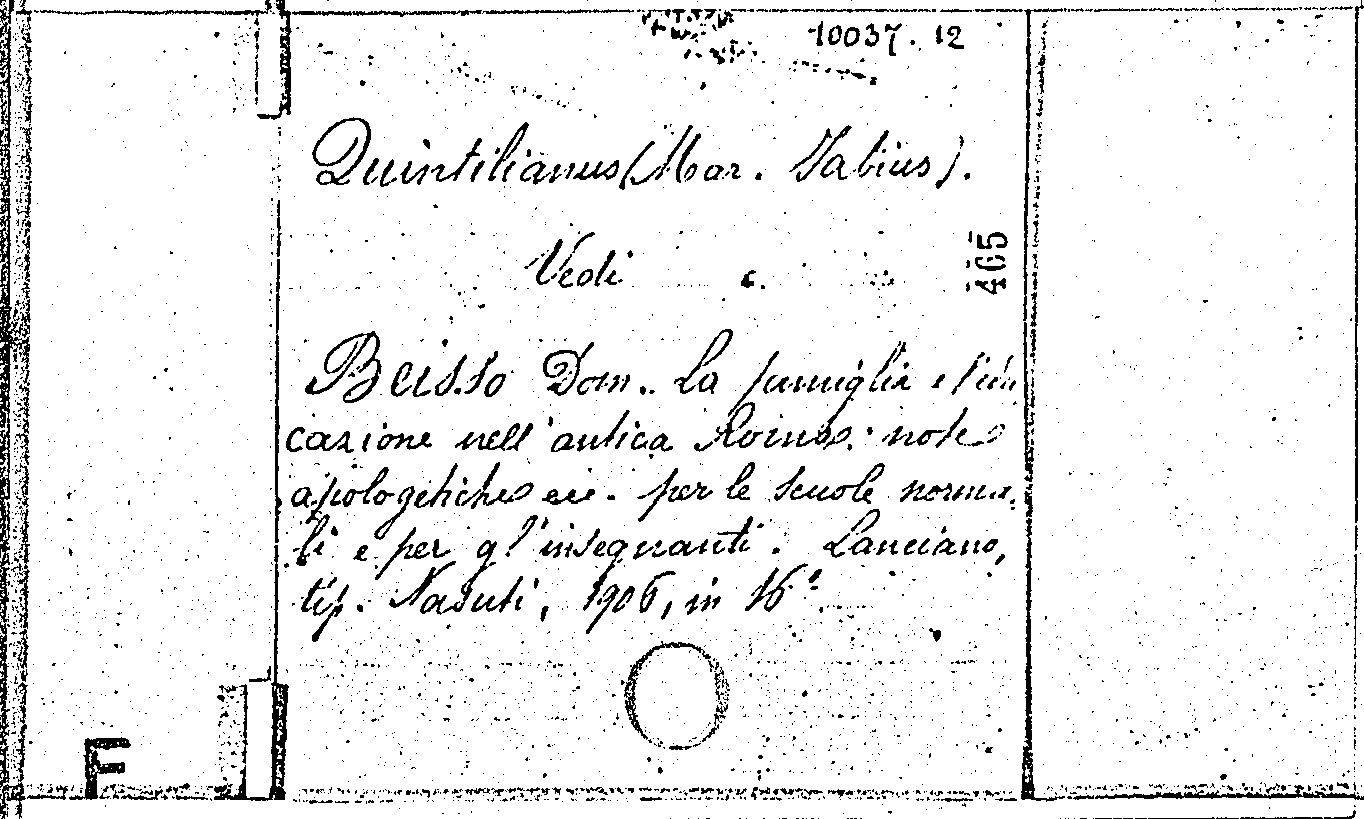 10037. 12
Quintilianus (Mar. Fabius).
Vedi
465
Beisso Dom. La famiglia e l'edu
cazione nell'antica Roma: note
apologetiche ecc. per le scuole norma-
li e per gl'insegnanti. Lanciano,
tip. Masciangelo
F